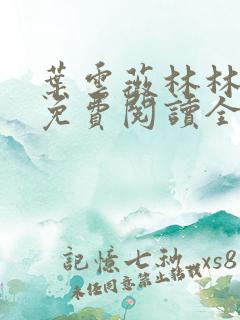 葉雲薇林林
免費閱讀全
記憶七秒 xs8
未经同意禁止转载